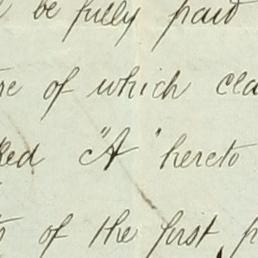 be fully paid
of which cla
ked "A" hereto
of the first p